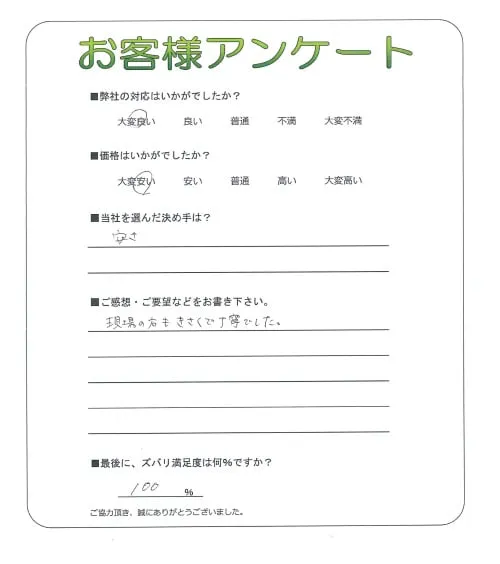 お客様アンケート
■弊社の対応はいかがでしたか？
大変良い 良い 普通 不満 大変不満
■価格はいかがでしたか？
大変安い 安い 普通 高い 大変高い
■当社を選んだ決め手は？
安さ
■ご感想・ご要望などをお書き下さい。
現場の方もきさくで丁寧でした。
■最後に、ズバリ満足度は何%ですか？
100 %
ご協力頂き、誠にありがとうございました。